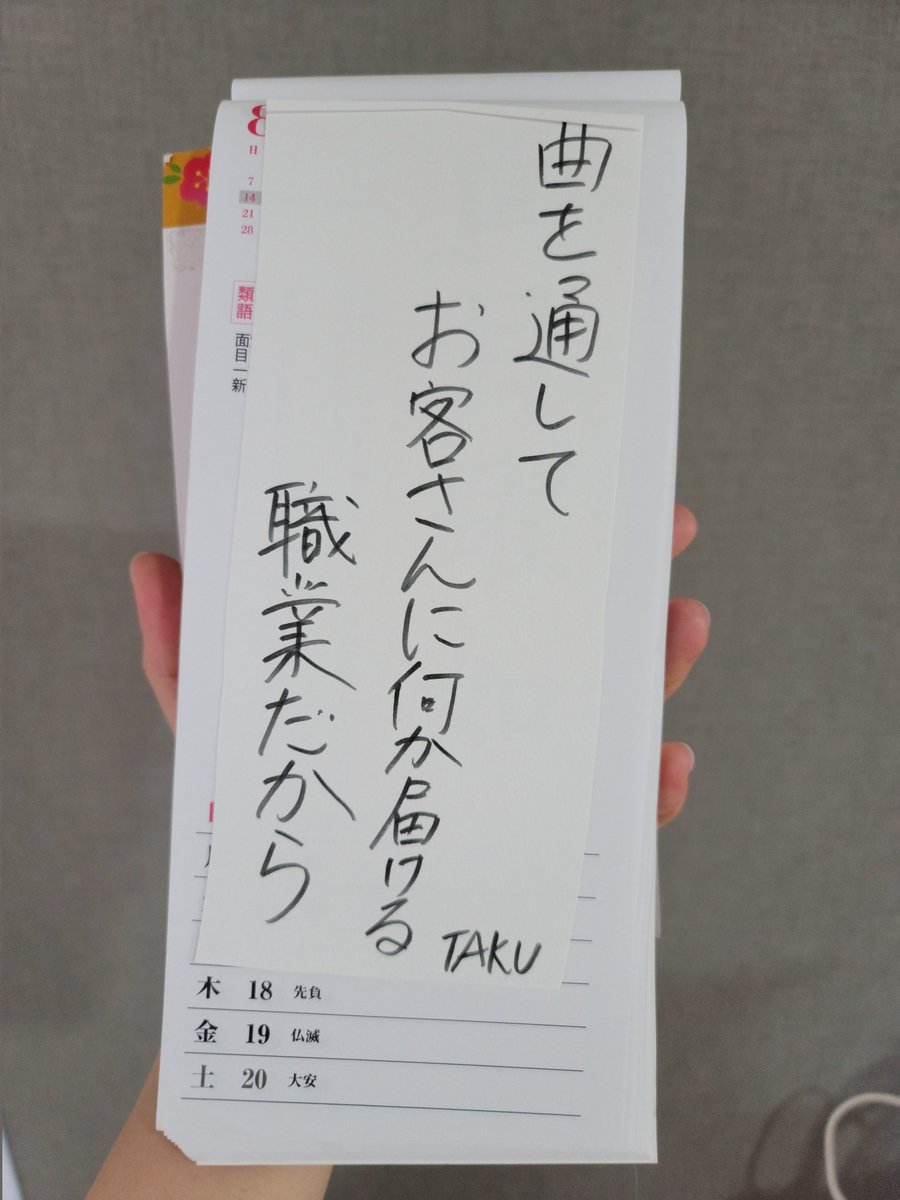 曲を通して
お客さんに何か届ける
職業だから
TAKU
8
日
7
14
21
28
類語
面目一新
木 18 先負
金 19 仏滅
土 20 大安